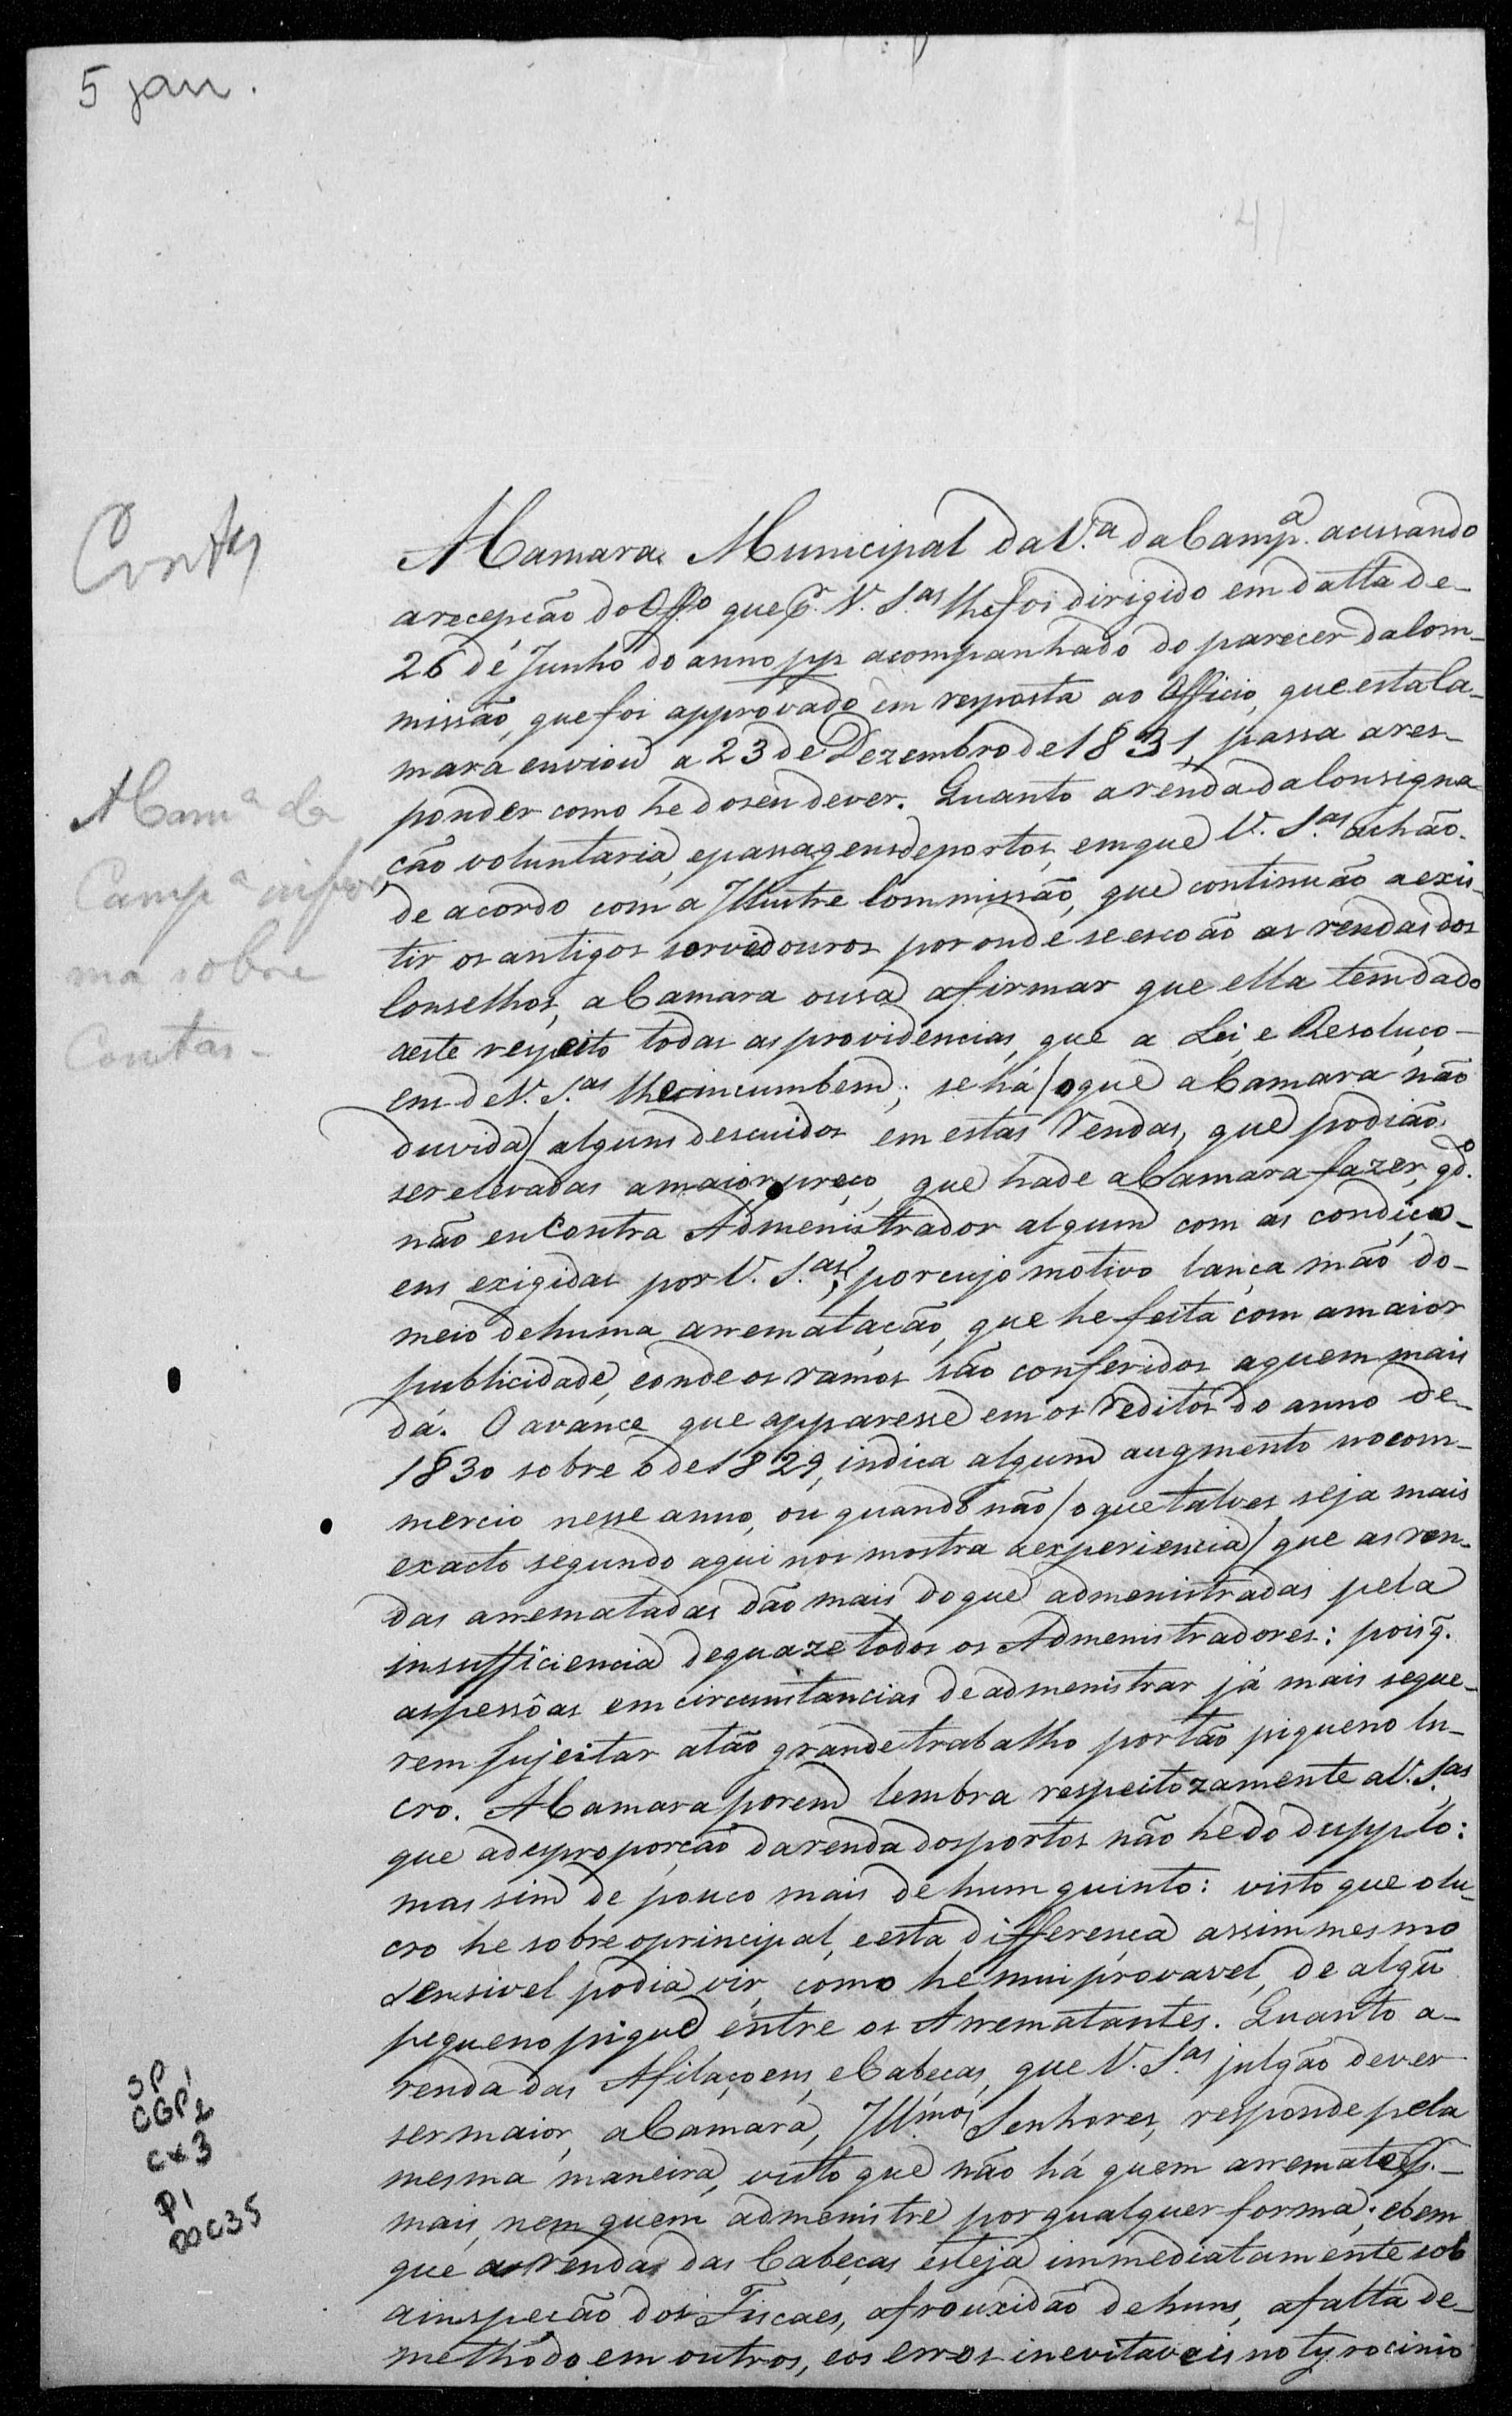 5 jan.
41
Contas
A Cam.ª da
Camp.ª infor
ma sobre
Contas -
A Camara Municipal da V.ª da Camp.ª acusando
a recepção do Off.º que p.r V. S.as lhe foi dirigido em datta de -
26 de Junho do anno pp acompanhado do parecer da Com-
missão, que foi approvado em resposta ao Officio, que esta Ca-
mara enviou a 23 de Dezembro de 1831, passa a res-
ponder como he do seu dever. Quanto a renda da Consigna-
ção voluntaria, e passagens de portos, em que V. S.as achão -
de acordo com a Illustre Commissão, que continuão a exis-
tir os antigos sorvedouros por onde se escoão as rendas dos
Conselhos, a Camara ousa afirmar que ella tem dado
a este respeito todas as providencias, que a Lei, e Resoluço-
ens de V. S.as lhe incumbem; se há / o que a Camara não
duvida / alguns descuidos em estas Rendas, que podião
ser elevadas a maior preço, que hade a Camara fazer, q.do
não encontra Admenistrador algum com as condiço-
ens exigidas por V. S.as, por cujo motivo lança mão do -
meio de huma arrematação, que he feita com a maior
publicidade, e onde os ramos são conferidos a quem mais
dá. O avance que apparesse em os reditos do anno de -
1830 sobre o de 1829, indica algum augmento no com-
mercio nesse anno, ou quando não / o que talves seja mais
exacto segundo aqui nos mostra a experiencia / que as ren-
das arrematadas dão mais do que admenistradas pela
insufficiencia de quaze todos os Admenistradores: pois q.
as pessôas em circumstancias de admenistrar já mais se que-
rem sujeitar a tão grande trabalho por tão piqueno lu-
cro. A Camara porem lembra respeitozamente a V. S.as
que a desproporção da renda dos portos não he do dupplo:
mas sim de pouco mais de hum quinto: visto que o lu-
cro he sobre o principal, e esta differença assim mesmo
sensivel podia vir, como he mui provavel, de algũ
pequeno pique entre os Arrematantes. Quanto a -
renda das Afilaçoens, e Cabeças, que V. S.as julgão dever
ser maior, a Camara, Ill.mos Senhores, responde pela
mesma maneira, visto que não há quem arremate p.r -
mais, nem quem admenistre por qualquer forma; e bem
que as rendas das Cabeças esteja immediatamente sob
a inspecão dos Fiscaes, a frouxidão de huns, a falta de -
methodo em outros, e os erros inevitaveis no tyrocinio
SP
CGP1
cx3
P1
00035